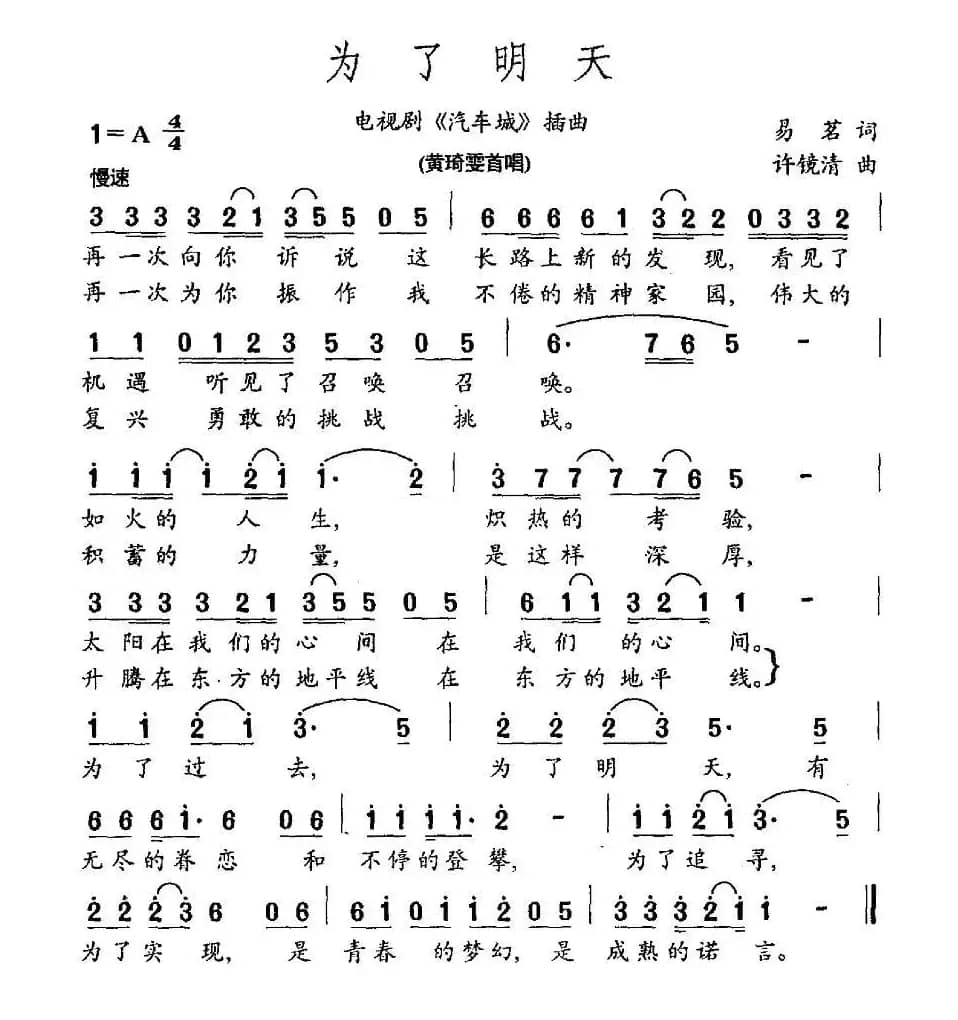 为了明天
1=A 4/4
电视剧《汽车城》插曲
易茗 词
(黄琦雯首唱)
许镜清 曲
慢速
3 3 3 3 2 1 3 5 5 0 5 | 6 6 6 6 1 3 2 2 0 3 3 2 |
再一次向你诉说这长路上新的发现,看见了
再一次为你振作我不倦的精神家园,伟大的
1 1 0 1 2 3 5 3 0 5 | 6· 7 6 5 - |
机遇听见了召唤召唤。
复兴勇敢的挑战挑战。
i i i i 2̇ i i· 2̇ | 3̇ 7 7 7 7 6 5 - |
如火的人生,炽热的考验,
积蓄的力量,是这样深厚,
3 3 3 3 2 1 3 5 5 0 5 | 6 1 1 3 2 1 1 - |
太阳在我们的心间在我们的心间。
升腾在东方的地平线在东方的地平线。}
i i 2̇ i 3̇· 5 | 2̇ 2̇ 2̇ 3̇ 5· 5 |
为了过去,为了明天,有
6 6 6 i· 6 0 6 | i i i i· 2̇ - | i i 2̇ i 3̇· 5 |
无尽的眷恋和不停的登攀,为了追寻,
2̇ 2̇ 2̇ 3̇ 6 0 6 | 6 i 0 i i 2̇ 0 5 | 3̇ 3̇ 3̇ 2̇ i i - ‖
为了实现,是青春的梦幻,是成熟的诺言。